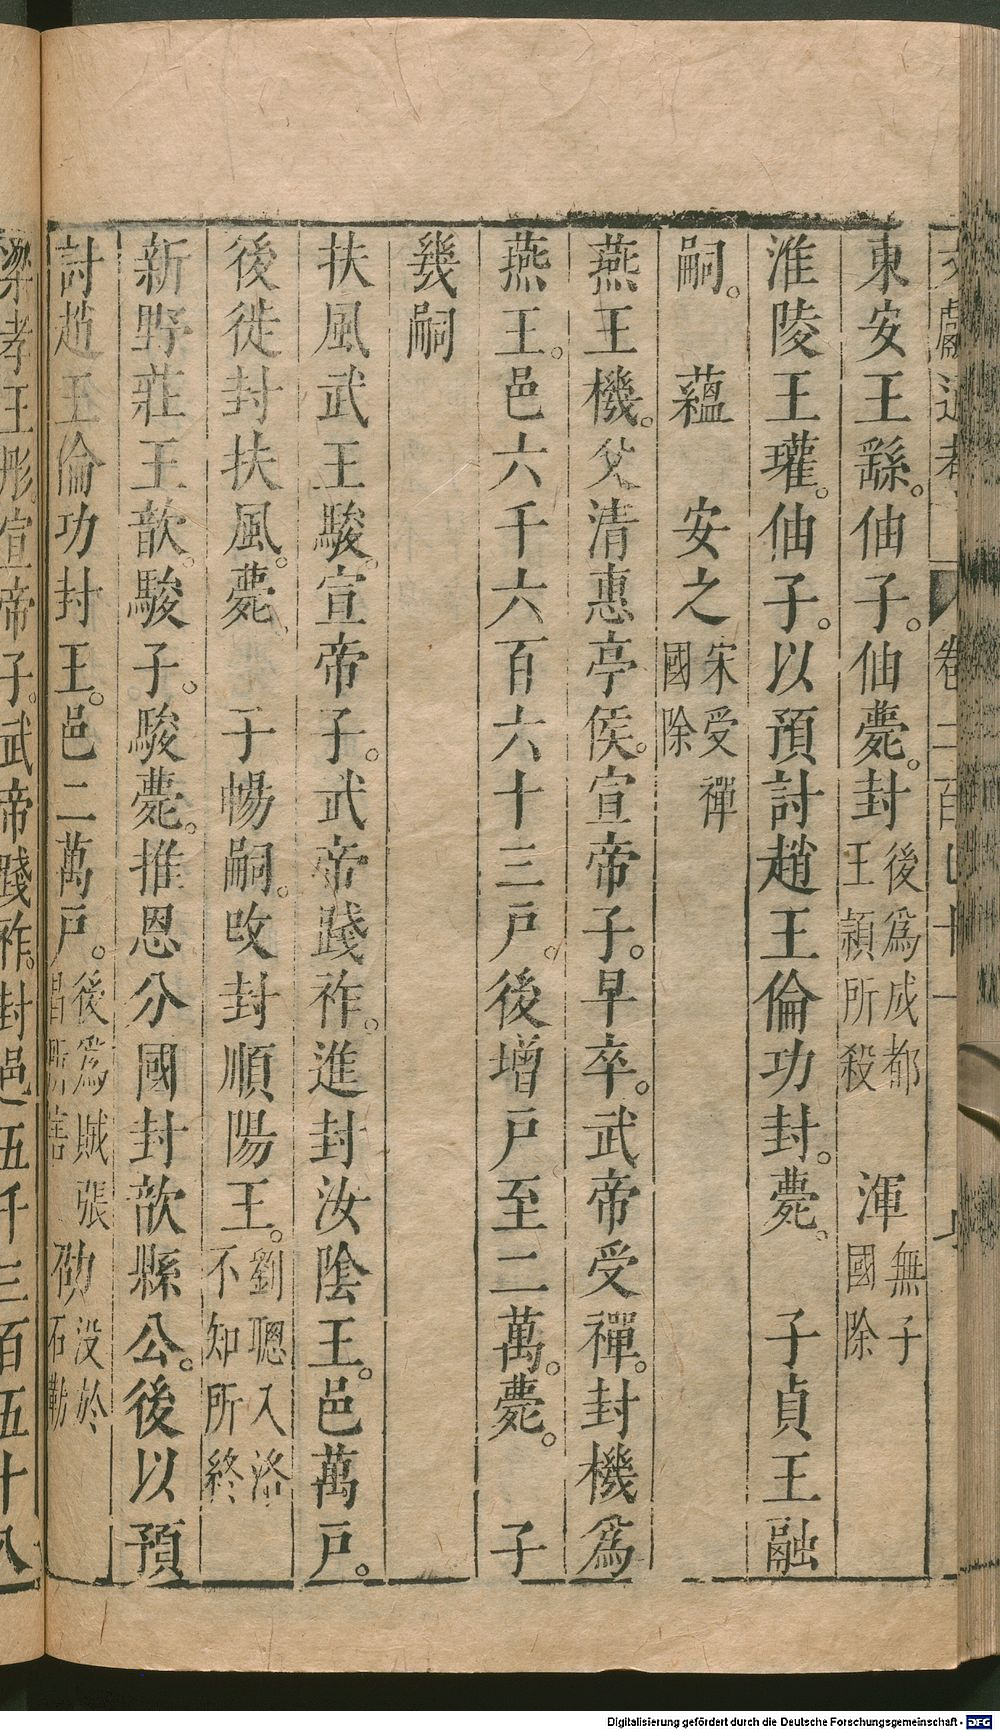 東安王繇。伷子。伷薨。封後爲成都王穎所殺　渾無子國除
淮陵王瓘。伷子。以預討趙王倫功封。薨。　子貞王融
嗣。　蘊　安之宋受禪國除
燕王機。父清惠亭侯。宣帝子。早卒。武帝受禪。封機爲
燕王。邑六千六百六十三戸。後增戸至二萬。薨。　子
幾嗣
扶風武王駿。宣帝子。武帝踐祚。進封汝陰王。邑萬戸。
後徙封扶風。薨。　子暢嗣。改封順陽王。劉聰入洛不知所終
新野莊王歆。駿子。駿薨。推恩分國封歆縣公。後以預
討趙王倫功封王。邑二萬戸。後爲賊張昌所害　劭没於石勒
梁孝王肜。宣帝子。武帝踐祚。封邑五千三百五十八
Digitalisierung gefördert durch die Deutsche Forschungsgemeinschaft - DFG